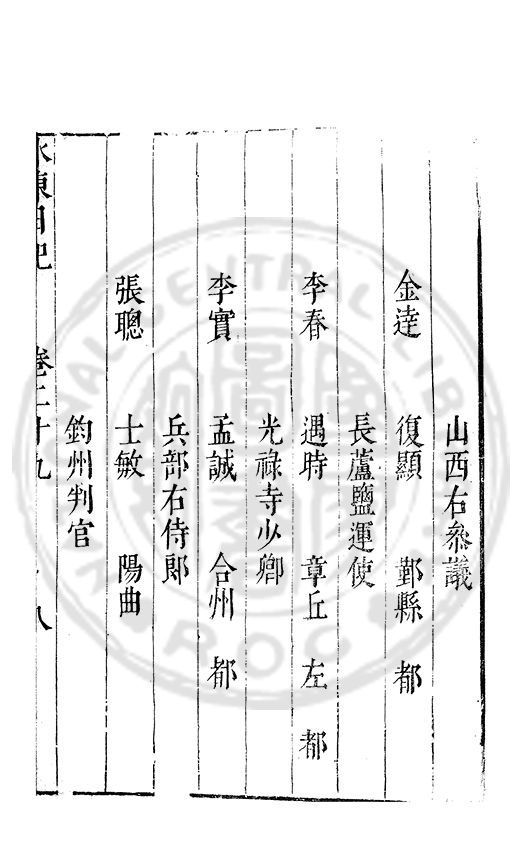 山西右叅議
金達 復顯 鄞縣 都
長蘆鹽運使
李春 遇時 章丘 左 都
光祿寺少卿
李實 孟誠 合州 都
兵部右侍郎
張聰 士敏 陽曲
鈞州判官
水東日記 卷二十九 八
NATIONAL CENTRAL LIBRARY